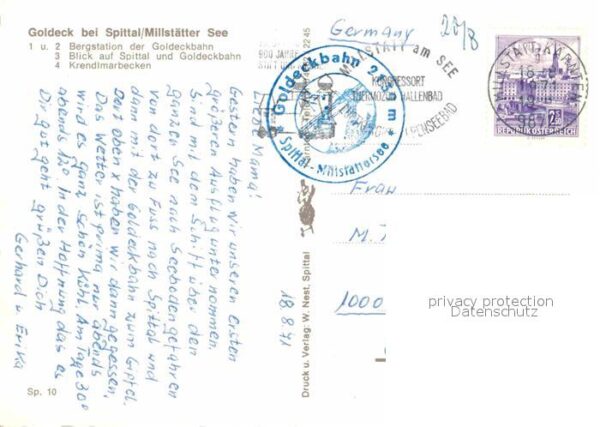 Goldeck bei Spittal/Millstätter See
1 u. 2 Bergstation der Goldeckbahn
3 Blick auf Spittal und Goldeckbahn
4 Krendlmarbecken
Mama!
Gestern haben wir unseren ersten
größeren Ausflug unternommen.
Sind mit dem Schiff über den
ganzen See nach Seeboden gefahren
von dort zu Fuss nach Spittal und
dann mit der Goldeckbahn zum Gipfel.
Dort oben x haben wir dann gegessen,
Das Wetter ist prima nur abends
wird es ganz schön kühl. Am Tage 30°
abends 12°. In der Hoffnung das es
Dir gut geht grüßen Dich
Gerhard u Erika
Sp. 10
18 8 71
Druck u. Verlag: W. Nest, Spittal
Germany
20/8
900 JAHRE
MILLSTATT am SEE
KONGRESSORT
THERMOZON HALLENBAD
Goldeckbahn
Spittal-Millstättersee
MILLSTATT, KÄRNTEN
18
9872
2
REPUBLIK ÖSTERREICH
Frau
M.
1000
privacy protection
Datenschutz